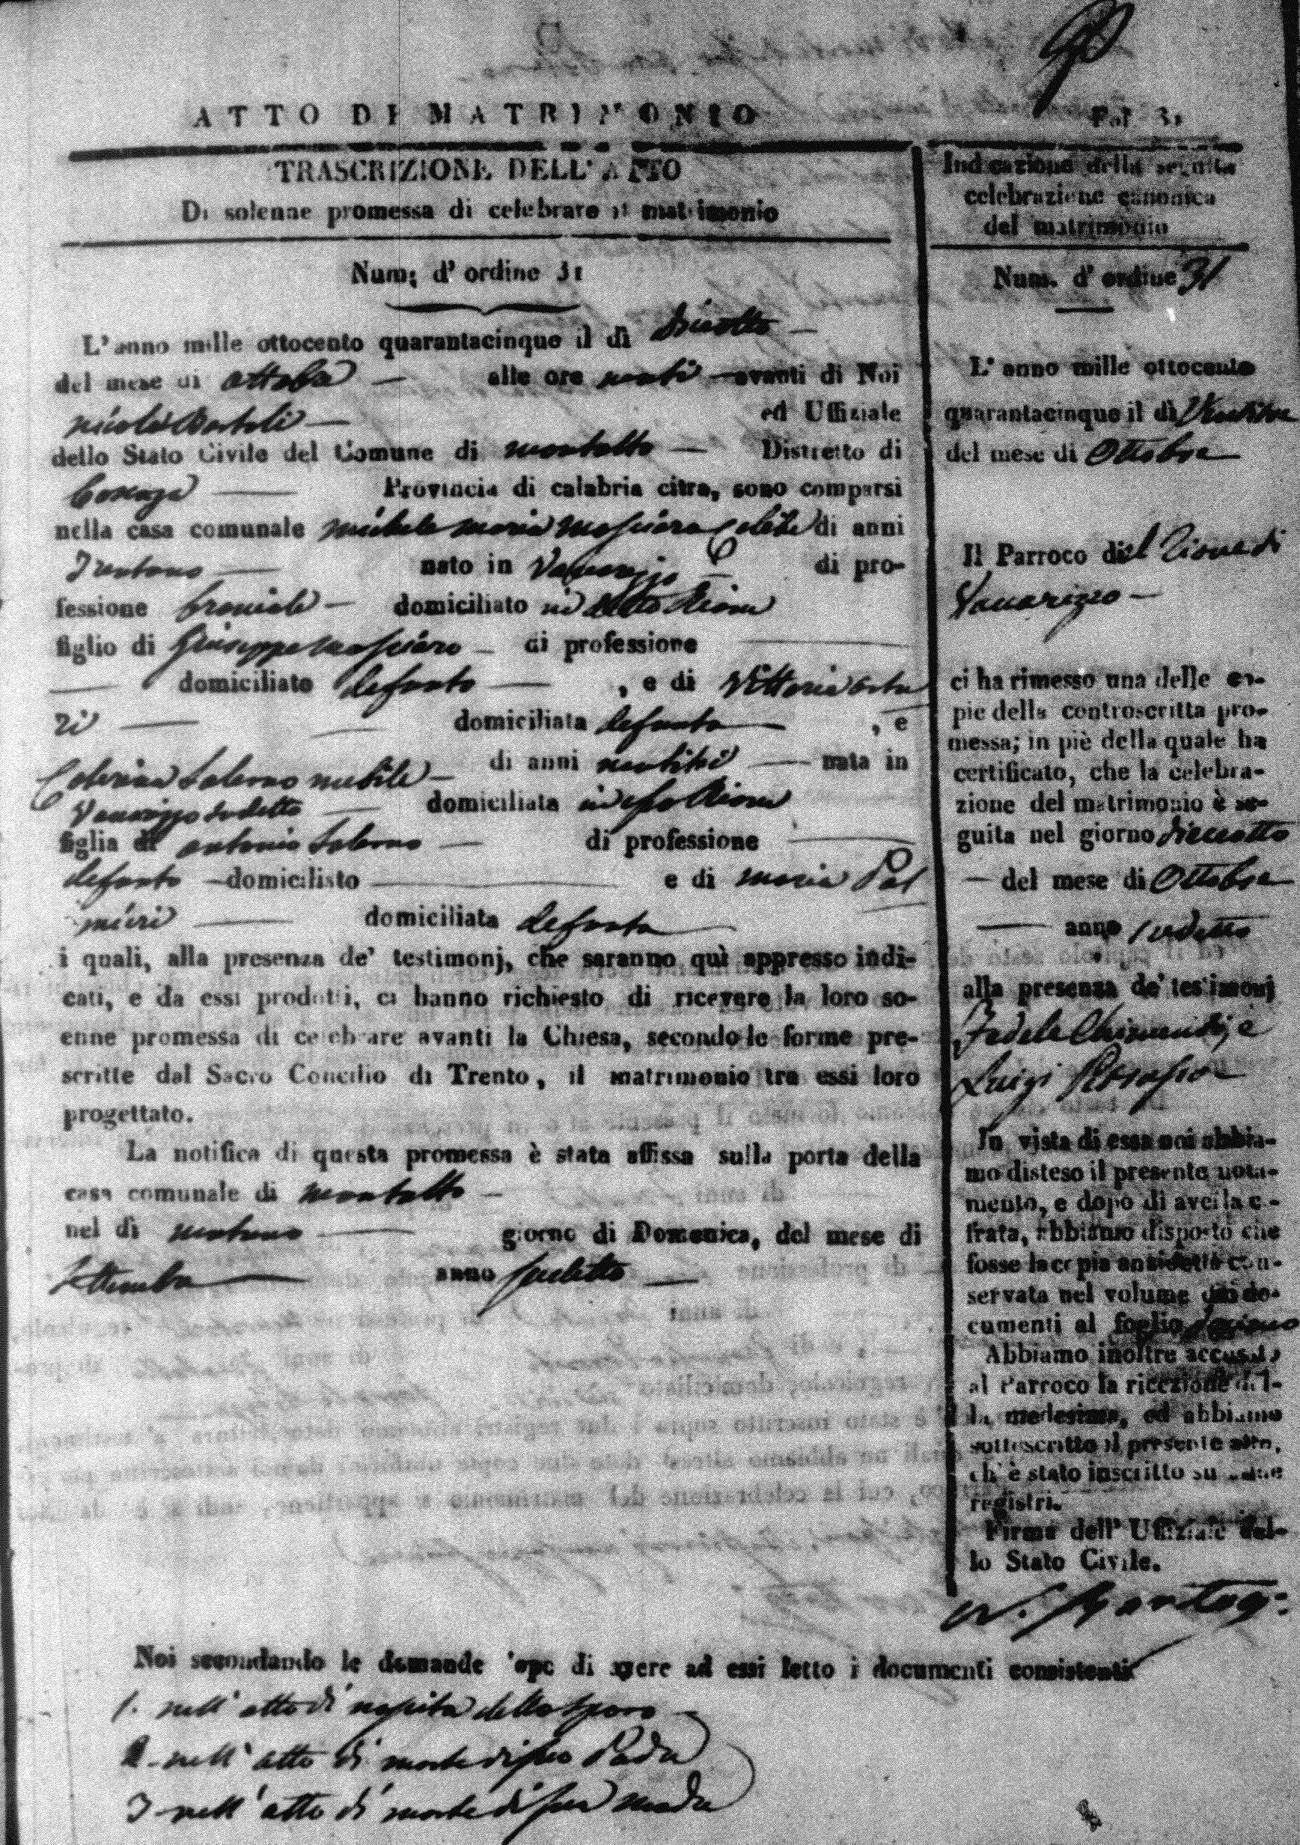 ATTO DI MATRIMONIO
Fol 31
TRASCRIZIONE DELL' ATTO
Di solenne promessa di celebrare il matrimonio
Num; d' ordine 31
L' anno mille ottocento quarantacinque il dì dieciotto
del mese di ottobre alle ore venti avanti di Noi
Nicola Bartoli ed Uffiziale
dello Stato Civile del Comune di Montalto Distretto di
Cosenza Provincia di calabria citra, sono comparsi
nella casa comunale Michele Maria Masciaro Celibe di anni
Trentuno nato in Vaccarizzo di pro-
fessione bracciale domiciliato in detto Rione
figlio di Giuseppe Masciaro di professione
domiciliato defunto , e di Vittoria
domiciliata defunta , e
Caterina Salerno nubile di anni ventitrè nata in
Vaccarizzo sudetto domiciliata in esso Rione
figlia di Antonio Salerno di professione
defunto domicilisto e di Maria Pal
mieri domiciliata defunta
i quali, alla presenza de' testimonj, che saranno quì appresso indi-
cati, e da essi prodotti, ci hanno richiesto di ricevere la loro so-
enne promessa di celebrare avanti la Chiesa, secondo le forme pre-
scritte dal Sacro Concilio di Trento, il matrimonio tra essi loro
progettato.
La notifica di questa promessa è stata affissa sulla porta della
casa comunale di Montalto
nel dì ventuno giorno di Domenica, del mese di
Settembre anno sudetto
Indicazione della seguita
celebrazione canonica
del matrimonio
Num. d' ordine 31
L' anno mille ottocento
quarantacinque il dì Ventitre
del mese di Ottobre
Il Parroco del Rione di
Vaccarizzo
ci ha rimesso una delle co-
pie della controscritta pro-
messa; in piè della quale ha
certificato, che la celebra-
zione del matrimonio è se-
guita nel giorno diecciotto
del mese di Ottobre
anno sudetto
alla presenza de' testimonj
Fedele Chimenti, e
Luigi
In vista di essa noi abbia-
mo disteso il presente nota-
mento, e dopo di averla ci-
frata, abbiamo disposto che
fosse la copia anzidetta con-
servata nel volume di do-
cumenti al foglio
Abbiamo inoltre accusato
al Parroco la ricezione del-
la medesima, ed abbiamo
sottoscritto il presente atto,
ch' è stato inscritto su i due
registri.
Firma dell' Uffiziale del-
lo Stato Civile.
Noi secondando le domande di avere ad essi letto i documenti consistenti
1. nell' atto di nascita dello sposo
2 - nell' atto di morte di suo Padre
3 - nell' atto di morte di sua Madre